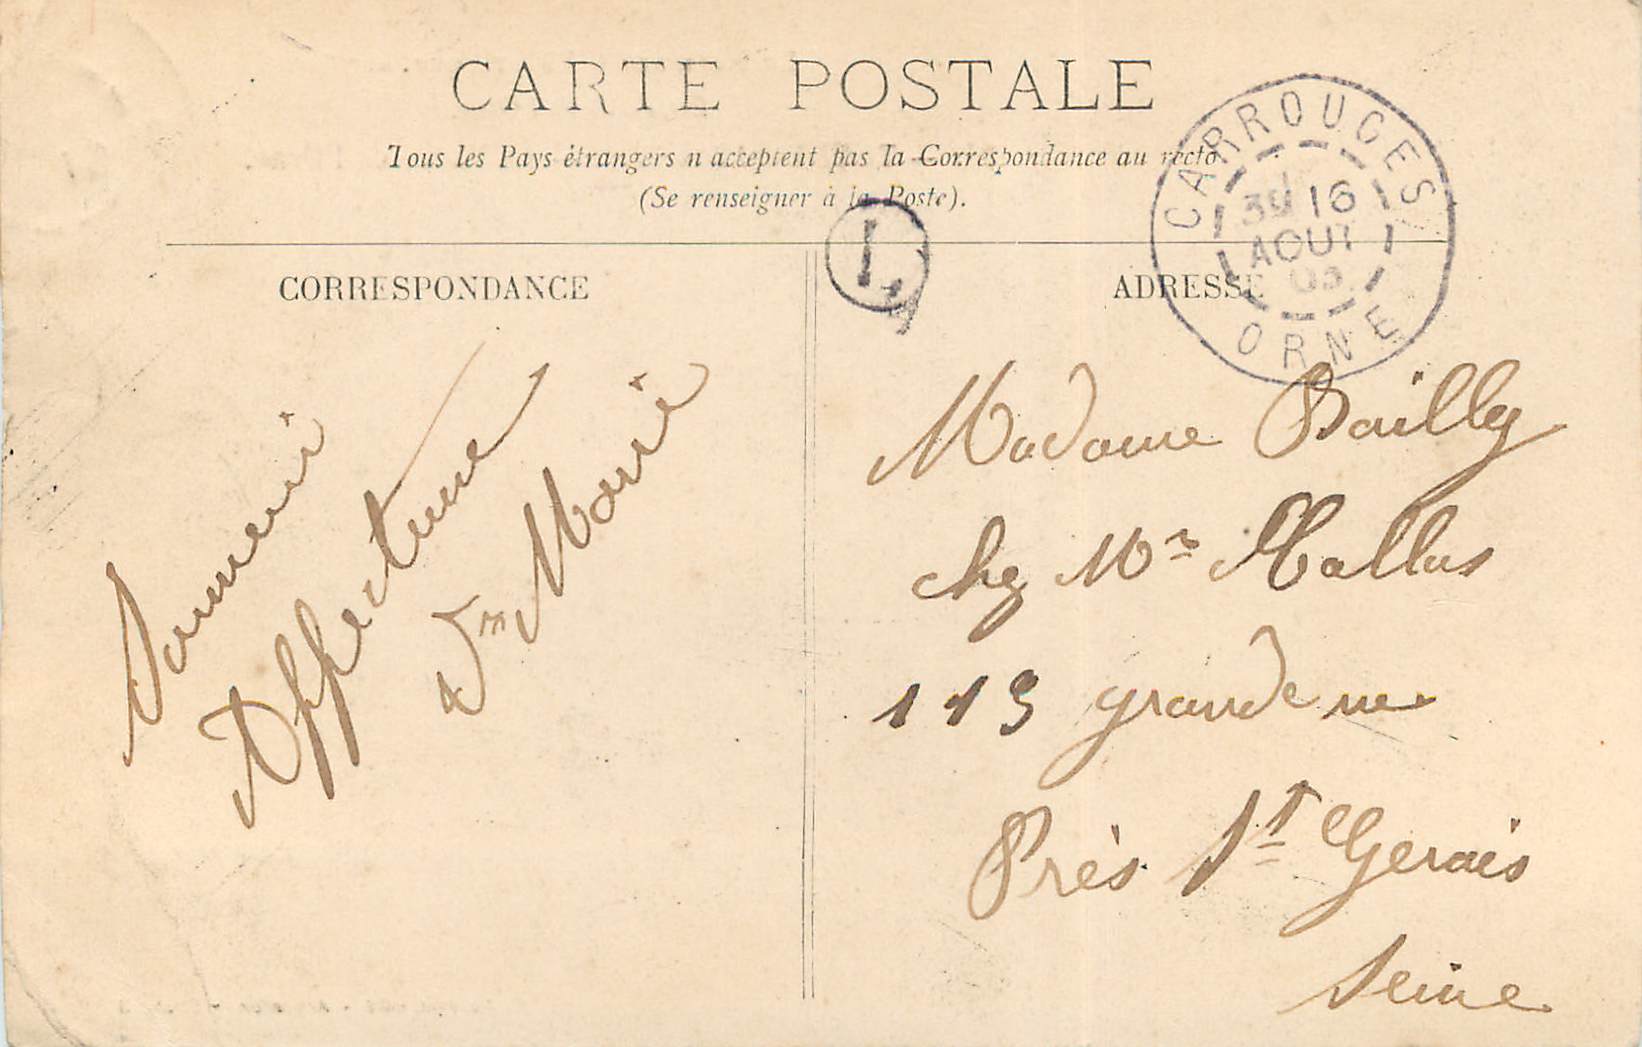 CARTE POSTALE
Tous les Pays étrangers n'acceptent pas la Correspondance au recto
(Se renseigner à la Poste).
CORRESPONDANCE
ADRESSE
CARROUGES
16
AOUT
05
ORNE
L
Souvenir
Affectueux
Vm Marie
Madame Bailly
chez Mr Mallus
113 grande rue
Près St Gervais
Seine